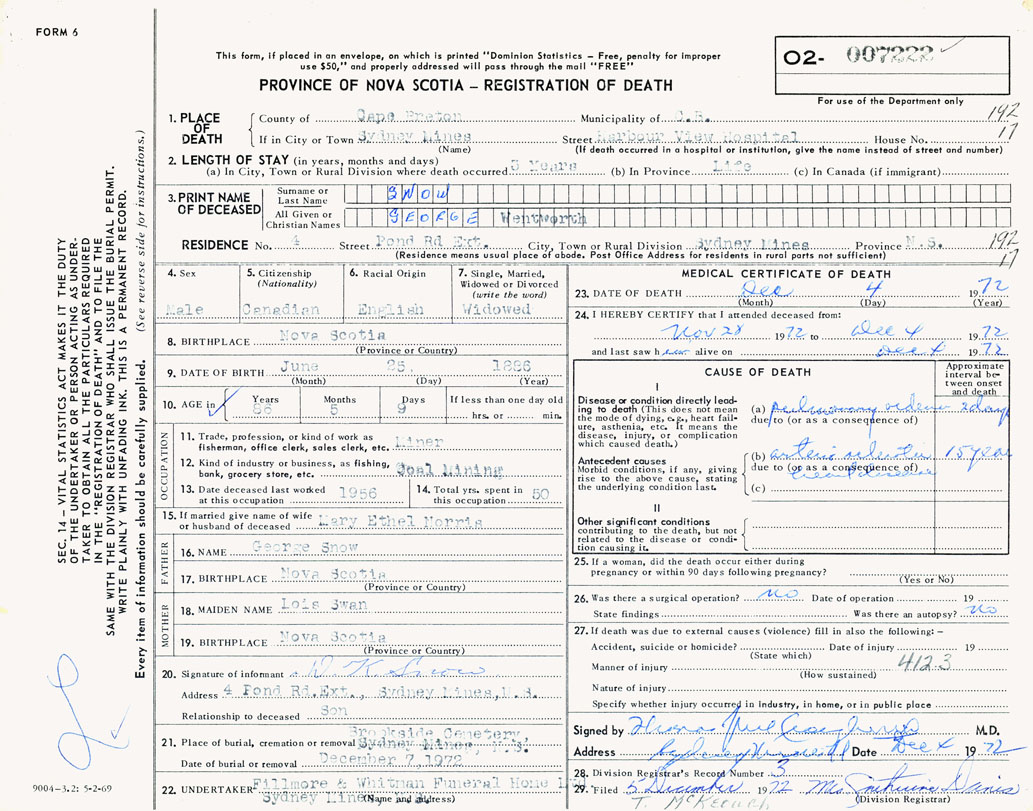 FORM 6
This form, if placed in an envelope, on which is printed "Dominion Statistics – Free, penalty for improper
use $50," and properly addressed will pass through the mail "FREE"
PROVINCE OF NOVA SCOTIA – REGISTRATION OF DEATH
O2- 007222
For use of the Department only
192
17
1. PLACE OF DEATH
County of Cape Breton Municipality of C.B.
If in City or Town Sydney Mines Street Harbour View Hospital House No.
(Name) (If death occurred in a hospital or institution, give the name instead of street and number)
2. LENGTH OF STAY (in years, months and days)
(a) In City, Town or Rural Division where death occurred 5 Years (b) In Province Life (c) In Canada (if immigrant)
3. PRINT NAME OF DECEASED
Surname or Last Name SNOW
All Given or Christian Names GEORGE Wentworth
RESIDENCE No. 4 Street Pond Rd Ext. City, Town or Rural Division Sydney Mines Province N.S.
192
17
(Residence means usual place of abode. Post Office Address for residents in rural parts not sufficient)
4. Sex
Male
5. Citizenship
(Nationality)
Canadian
6. Racial Origin
English
7. Single, Married,
Widowed or Divorced
(write the word)
Widowed
8. BIRTHPLACE Nova Scotia
(Province or Country)
9. DATE OF BIRTH June 25. 1886
(Month) (Day) (Year)
10. AGE in
Years Months Days If less than one day old
86 5 9 hrs. or min.
OCCUPATION
11. Trade, profession, or kind of work as
fisherman, office clerk, sales clerk, etc. Miner
12. Kind of industry or business, as fishing,
bank, grocery store, etc. Coal Mining
13. Date deceased last worked
at this occupation 1956
14. Total yrs. spent in
this occupation 50
15. If married give name of wife
or husband of deceased Mary Ethel Norris
FATHER
16. NAME George Snow
17. BIRTHPLACE Nova Scotia
(Province or Country)
MOTHER
18. MAIDEN NAME Lois Swan
19. BIRTHPLACE Nova Scotia
(Province or Country)
20. Signature of informant D K Snow
Address 4 Pond Rd.Ext., Sydney Mines,N.S.
Relationship to deceased Son
Brookside Cemetery
21. Place of burial, cremation or removal Sydney Mines, N.S.
Date of burial or removal December 7,1972
22. UNDERTAKER Fillmore & Whitman Funeral Home Ltd
Sydney Mines
(Name and address)
MEDICAL CERTIFICATE OF DEATH
23. DATE OF DEATH Dec 4 1972
(Month) (Day) (Year)
24. I HEREBY CERTIFY that I attended deceased from:
Nov 28 1972 to Dec 4 1972
and last saw him alive on Dec 4 1972
CAUSE OF DEATH
Approximate
interval be-
tween onset
and death
I
Disease or condition directly lead-
ing to death (This does not mean
the mode of dying, e.g., heart fail-
ure, asthenia, etc. It means the
disease, injury, or complication
which caused death.)
(a) pulmonary edema 2 days
due to (or as a consequence of)
Antecedent causes
Morbid conditions, if any, giving
rise to the above cause, stating
the underlying condition last.
(b) arterio sclerotic 15 years
due to (or as a consequence of)
heart disease
(c)
II
Other significant conditions
contributing to the death, but not
related to the disease or condi-
tion causing it.
25. If a woman, did the death occur either during
pregnancy or within 90 days following pregnancy?
(Yes or No)
26. Was there a surgical operation? No Date of operation 19
State findings Was there an autopsy? No
27. If death was due to external causes (violence) fill in also the following: –
Accident, suicide or homicide? Date of injury 19
(State which)
412.3
Manner of injury
(How sustained)
Nature of injury
Specify whether injury occurred in industry, in home, or in public place
Signed by M.D.
Address Date Dec 4 1972
28. Division Registrar's Record Number 3
29. Filed 5 December 1972 Mrs Davis
(Division Registrar)
SEC. 14 – VITAL STATISTICS ACT MAKES IT THE DUTY
OF THE UNDERTAKER OR PERSON ACTING AS UNDER-
TAKER TO OBTAIN ALL THE PARTICULARS REQUIRED
IN THE "REGISTRATION OF DEATH" AND TO FILE THE
SAME WITH THE DIVISION REGISTRAR WHO SHALL ISSUE THE BURIAL PERMIT.
WRITE PLAINLY WITH UNFADING INK. THIS IS A PERMANENT RECORD.
Every item of information should be carefully supplied. (See reverse side for instructions.)
9004-3.2: 5-2-69